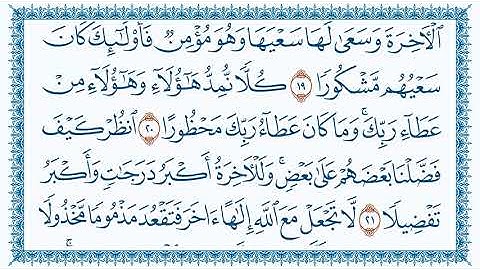 ٱلْأَخِرَةَ وَسَعَىٰ لَهَا سَعْيَهَا وَهُوَ مُؤْمِنٌ فَأُو۟لَٰٓئِكَ كَانَ
سَعْيُهُم مَّشْكُورًا ١٩ كُلًّا نُّمِدُّ هَٰٓؤُلَآءِ وَهَٰٓؤُلَآءِ مِنْ
عَطَآءِ رَبِّكَ ۚ وَمَا كَانَ عَطَآءُ رَبِّكَ مَحْظُورًا ٢٠ ٱنظُرْ كَيْفَ
فَضَّلْنَا بَعْضَهُمْ عَلَىٰ بَعْضٍ ۚ وَلَلْأَخِرَةُ أَكْبَرُ دَرَجَٰتٍ وَأَكْبَرُ
تَفْضِيلًا ٢١ لَّا تَجْعَلْ مَعَ ٱللَّهِ إِلَٰهًا ءَاخَرَ فَتَقْعُدَ مَذْمُومًا مَّخْذُولًا